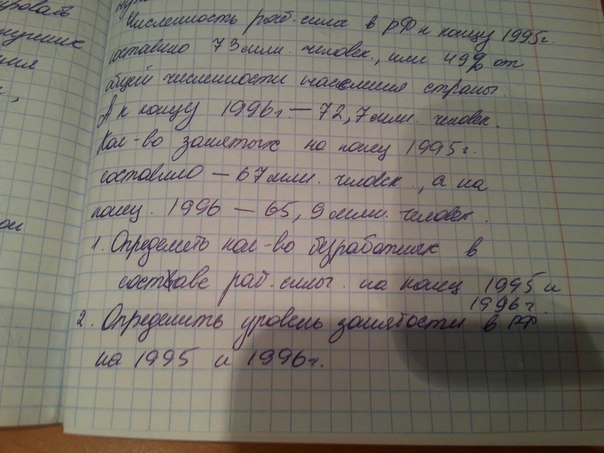 Численность раб. силы в РФ к концу 1995г.
составило 73 млн. человек, или 49% от
общей численности населения страны.
А к концу 1996г. — 72,7 млн. человек.
Кол-во занятых на конец 1995г.
составило — 67 млн. человек, а на
конец. 1996 — 65,9 млн. человек.
1. Определить кол-во безработных в
составе раб. силы. на конец 1995 и
1996г.
2. Определить уровень занятости в РФ
на 1995 и 1996г.